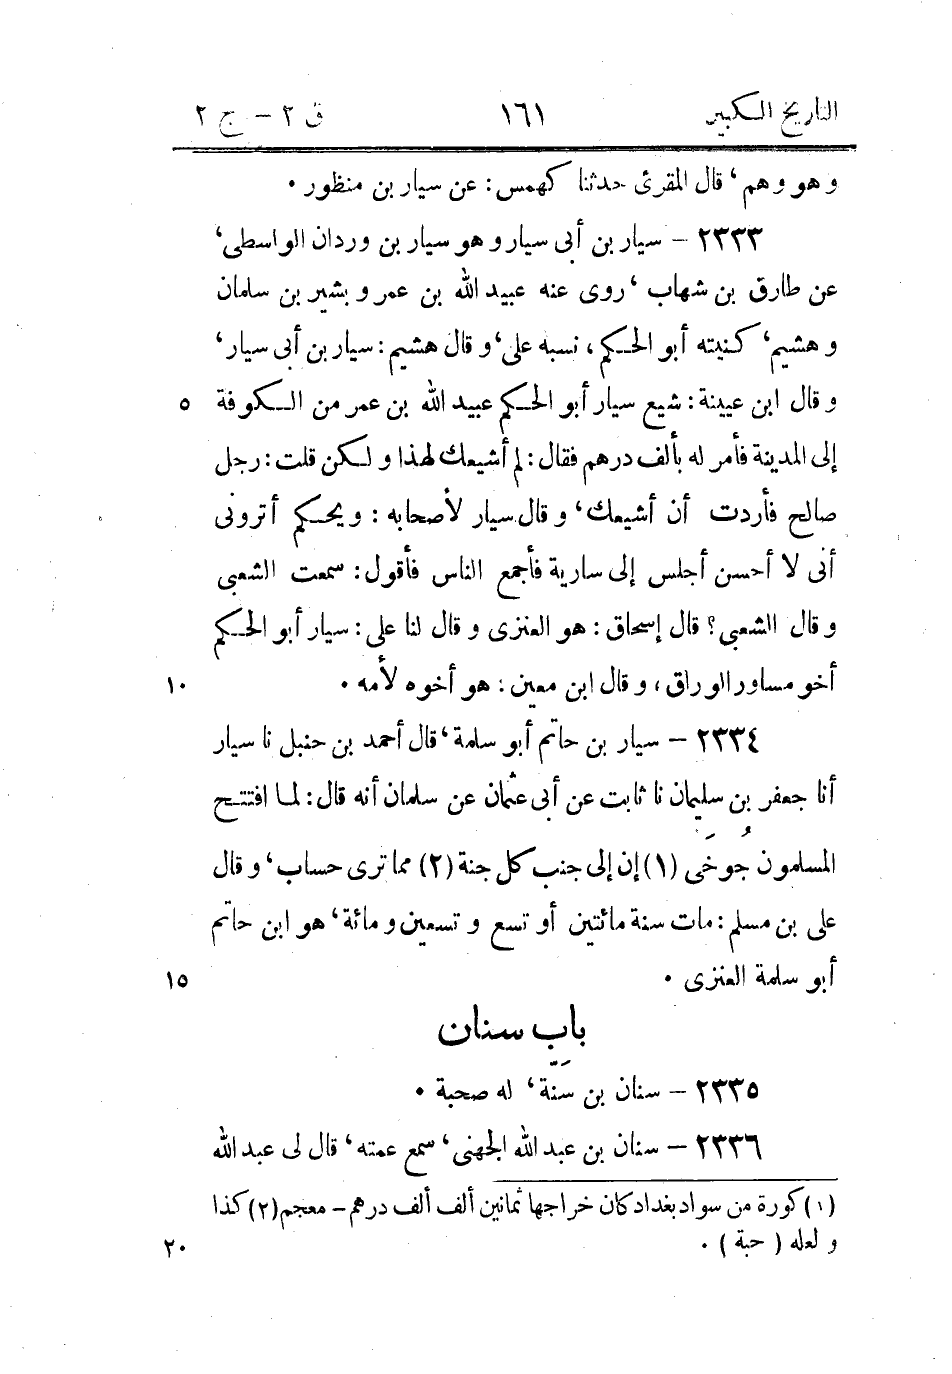 التاريخ الكبير ١٦١ ق ٢ - ج ٢
و هو وهم، قال المقرئ حدثنا كهمس: عن سيار بن منظور.
٢٣٣٣ - سيار بن أبى سيار و هو سيار بن وردان الواسطى،
عن طارق بن شهاب، روى عنه عبيد الله بن عمر و بشير بن سلمان
و هشيم، كنيته أبو الحكم، نسبه على، و قال هشيم: سيار بن أبى سيار،
و قال ابن عيينة: شيع سيار أبو الحكم عبيد الله بن عمر من الكوفة ٥
إلى المدينة فأمر له بألف درهم فقال: لم أشيعك لهذا و لكن قلت: رجل
صالح فأردت أن أشيعك، و قال سيار لأصحابه: ويحكم أترونى
أنى لا أحسن أجلس إلى سارية فأجمع الناس فأقول: سمعت الشعبى
و قال الشعبى؟ قال إسحاق: هو العنزى و قال لنا على: سيار أبو الحكم
أخو مساور الوراق، و قال ابن معين: هو أخوه لأمه. ١٠
٢٣٣٤ - سيار بن حاتم أبو سلمة، قال أحمد بن حنبل نا سيار
أنا جعفر بن سليمان نا ثابت عن أبى عثمان عن سلمان أنه قال: لما افتتح
المسلمون جُوخَى (١) إن إلى جنب كل جنة (٢) مما ترى حساب، و قال
على بن مسلم: مات سنة مائتين أو تسع و تسعين و مائة، هو ابن حاتم
أبو سلمة العنزى. ١٥
باب سنان
٢٣٣٥ - سنان بن سَنّة، له صحبة.
٢٣٣٦ - سنان بن عبد الله الجهنى، سمع عمته، قال لى عبد الله
(١) كورة من سواد بغداد كان خراجها ثمانين ألف ألف درهم - معجم (٢) كذا
و لعله (حبة). ٢٠